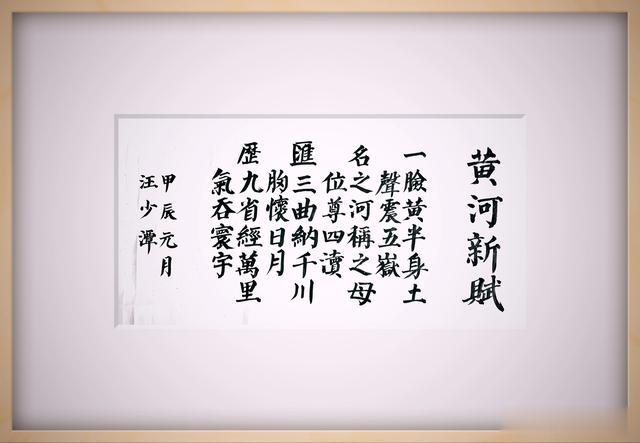 黃河新賦
一臉黃半身土
聲震五嶽
名之河稱之母
位尊四瀆
匯三曲納千川
胸懷日月
歷九省經萬里
氣吞寰宇
甲辰元月
汪少潭